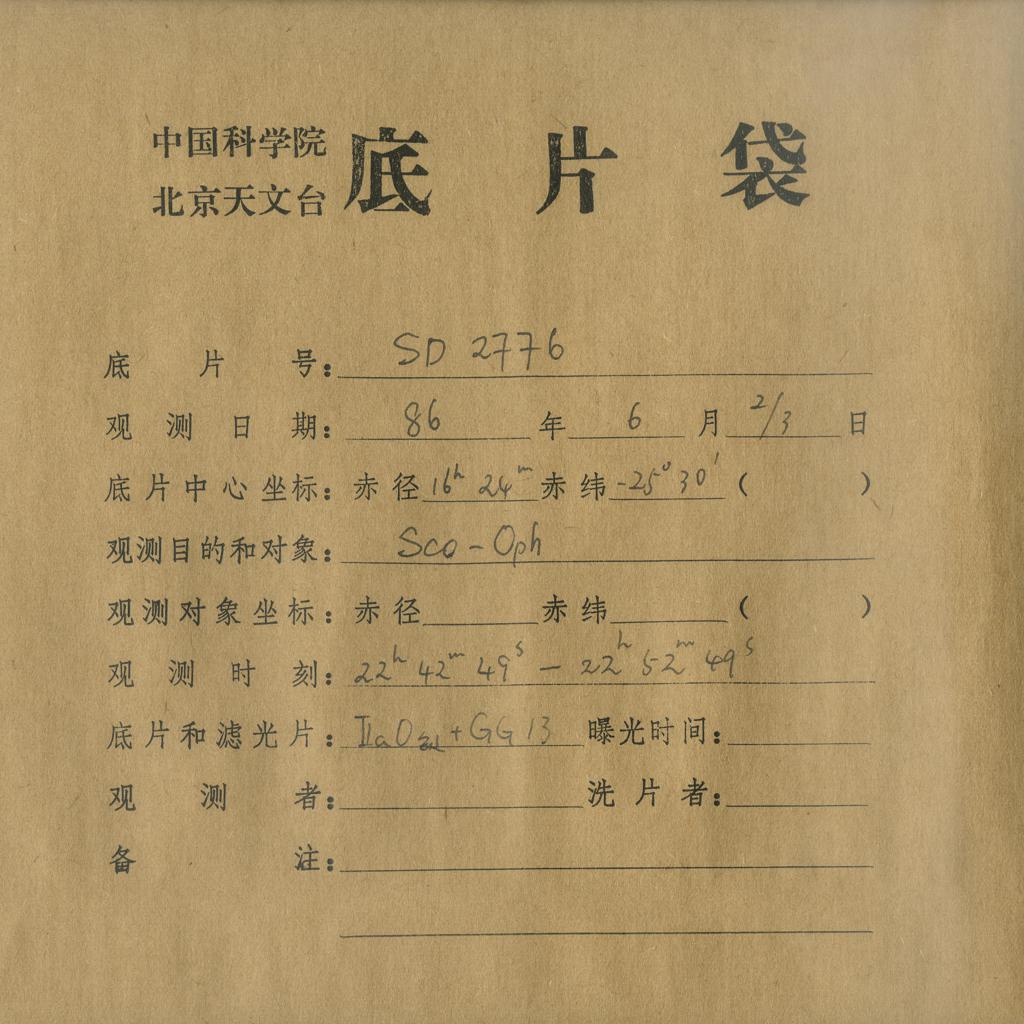 中国科学院
北京天文台
底片袋
底片号：SD 2776
观测日期：86年6月2/3日
底片中心坐标：赤径16h 24m赤纬-25°30′（ ）
观测目的和对象：Sco-Oph
观测对象坐标：赤径 赤纬 （ ）
观测时刻：22h 42m 49s — 22h 52m 49s
底片和滤光片：IIaO + GG 13 曝光时间：
观测者： 洗片者：
备注：